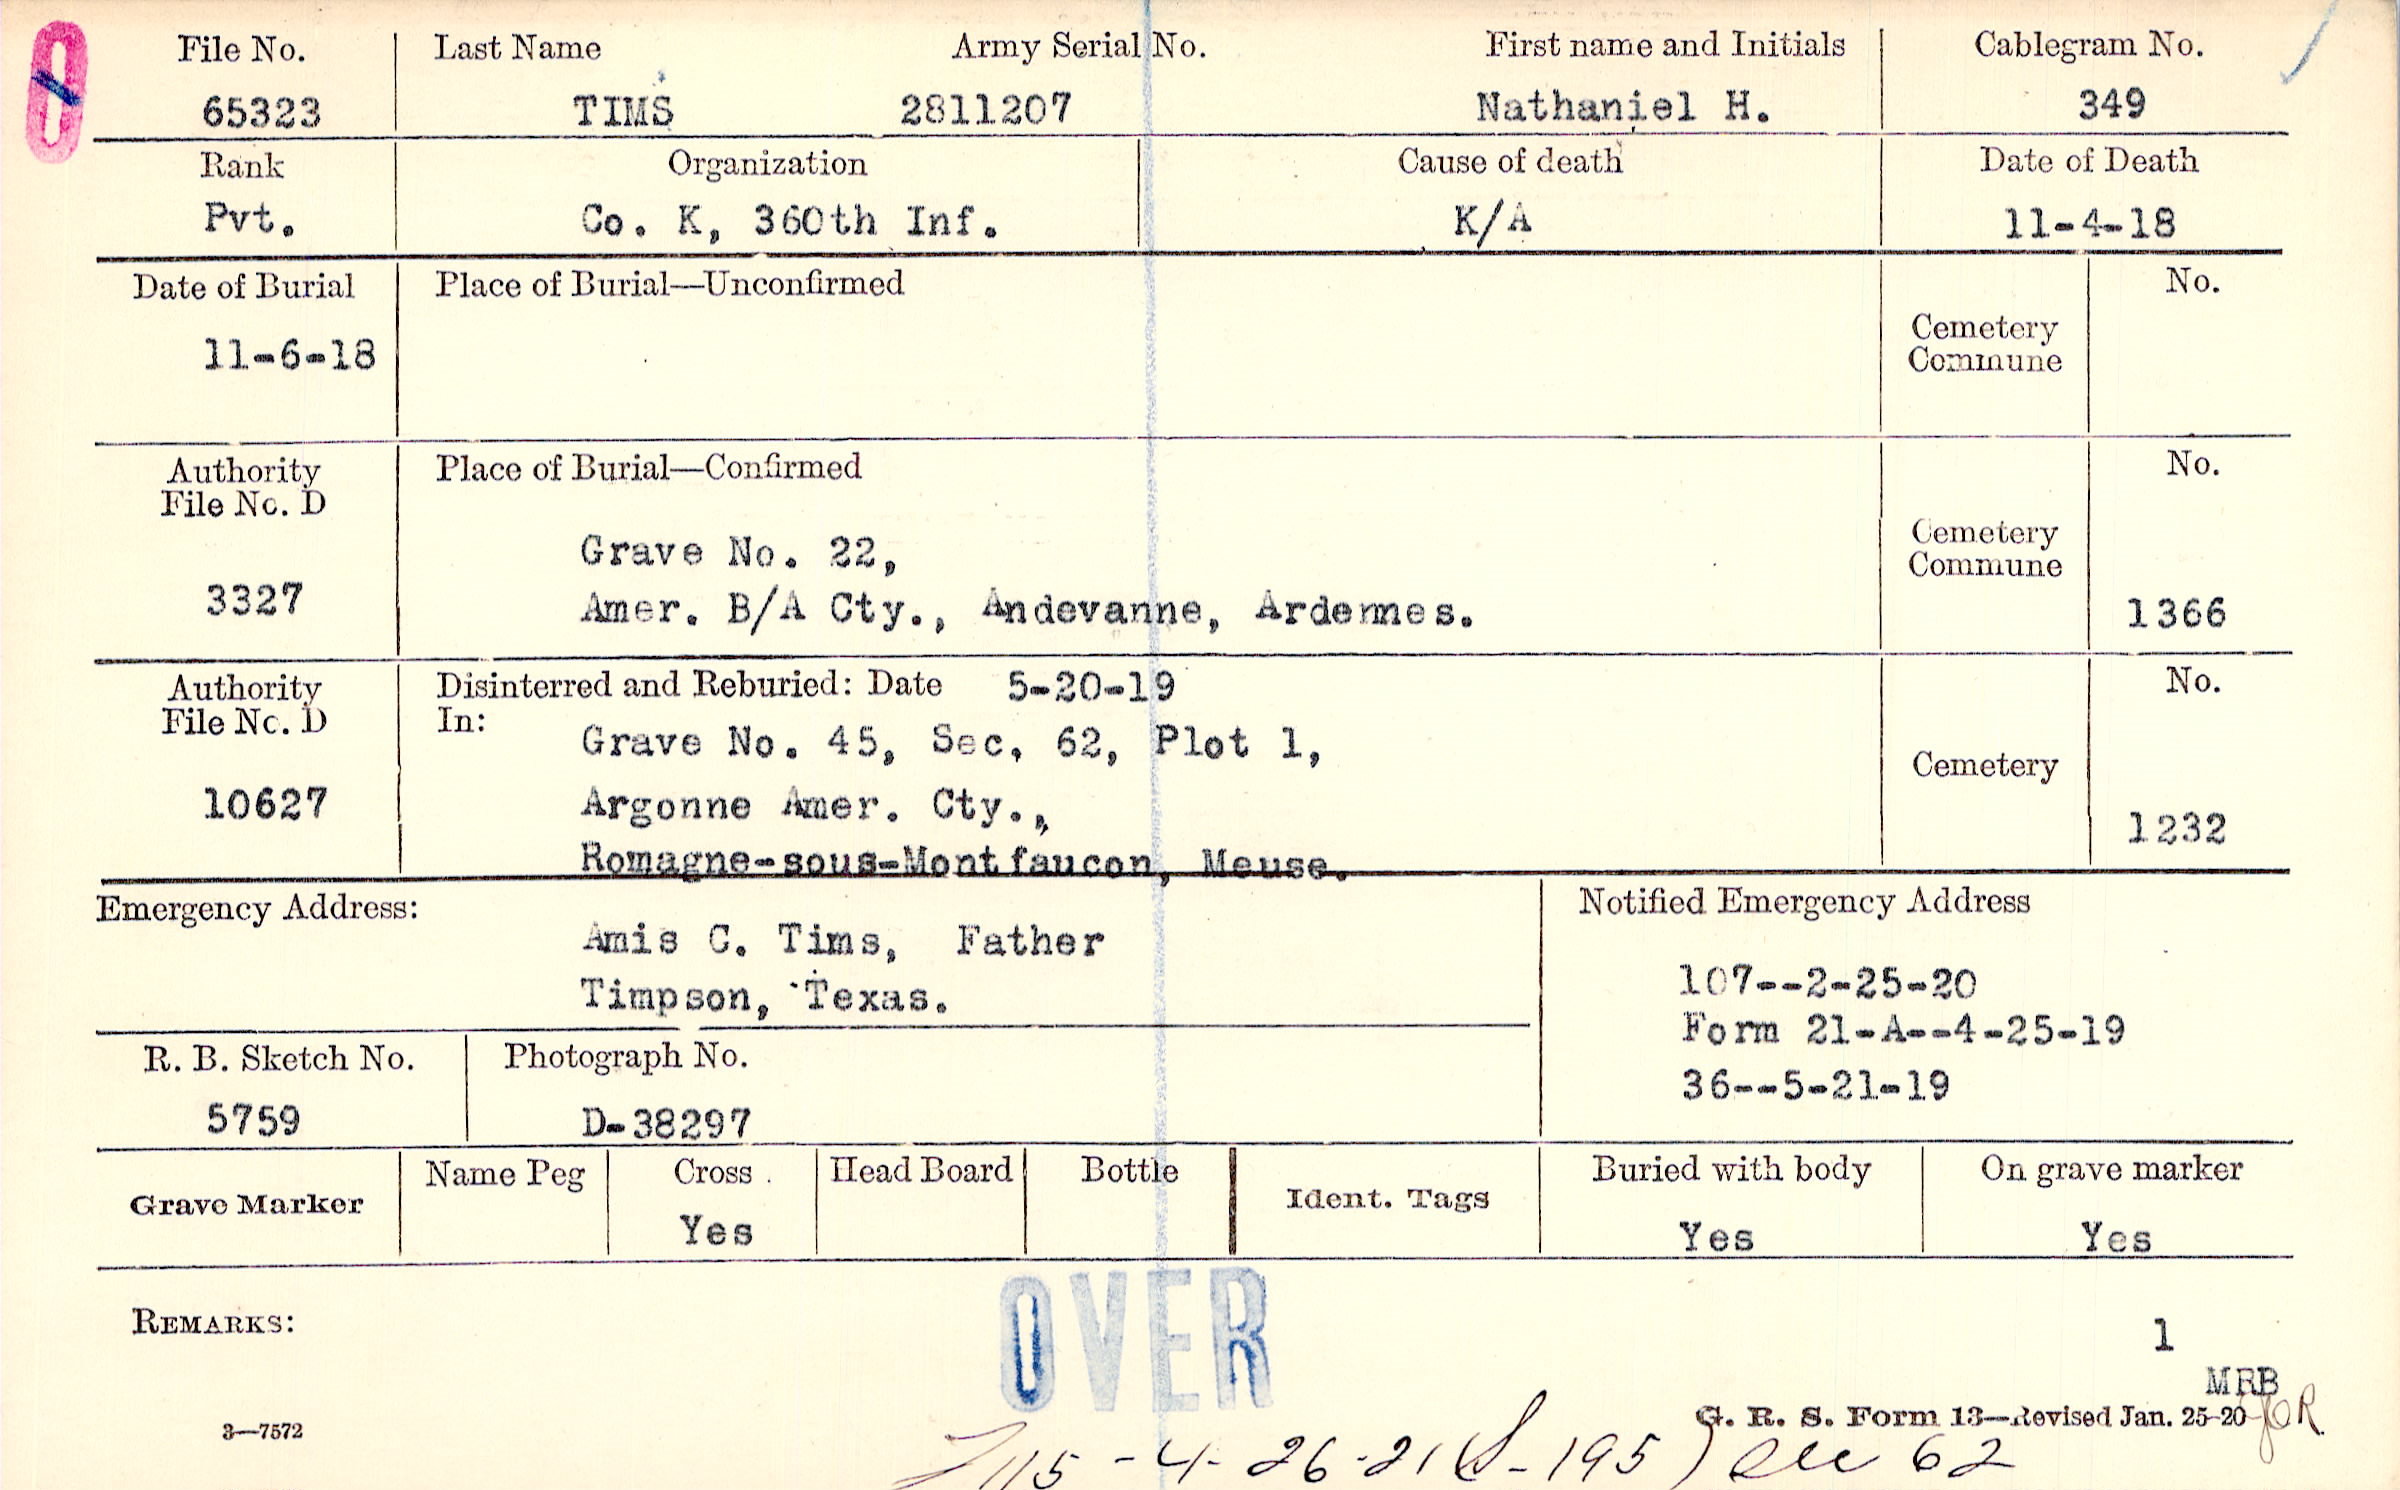 File No. Last Name Army Serial No. First name and Initials Cablegram No.
65323 TIMS 2811207 Nathaniel H. 349
Rank Organization Cause of death Date of Death
Pvt. Co. K, 360th Inf. K/A 11-4-18
Date of Burial Place of Burial—Unconfirmed No.
Cemetery
Commune
11-6-18
Authority Place of Burial—Confirmed No.
File No. D
Cemetery
Commune
Grave No. 22,
3327 Amer. B/A Cty., Andevanne, Ardennes. 1366
Authority Disinterred and Reburied: Date 5-20-19 No.
File No. D In:
Grave No. 45, Sec. 62, Plot 1,
Cemetery
10627 Argonne Amer. Cty., 1232
Romagne-sous-Montfaucon, Meuse.
Emergency Address: Notified Emergency Address
Amis C. Tims, Father
Timpson, Texas.
107--2-25-20
Form 21-A--4-25-19
36--5-21-19
R. B. Sketch No. Photograph No.
5759 D-38297
Grave Marker Name Peg Cross Head Board Bottle Ident. Tags Buried with body On grave marker
Yes Yes Yes
OVER
REMARKS:
1
MRB
G. R. S. Form 13—Revised Jan. 25-20
3—7572
115-4-26-21 (S-195) 62